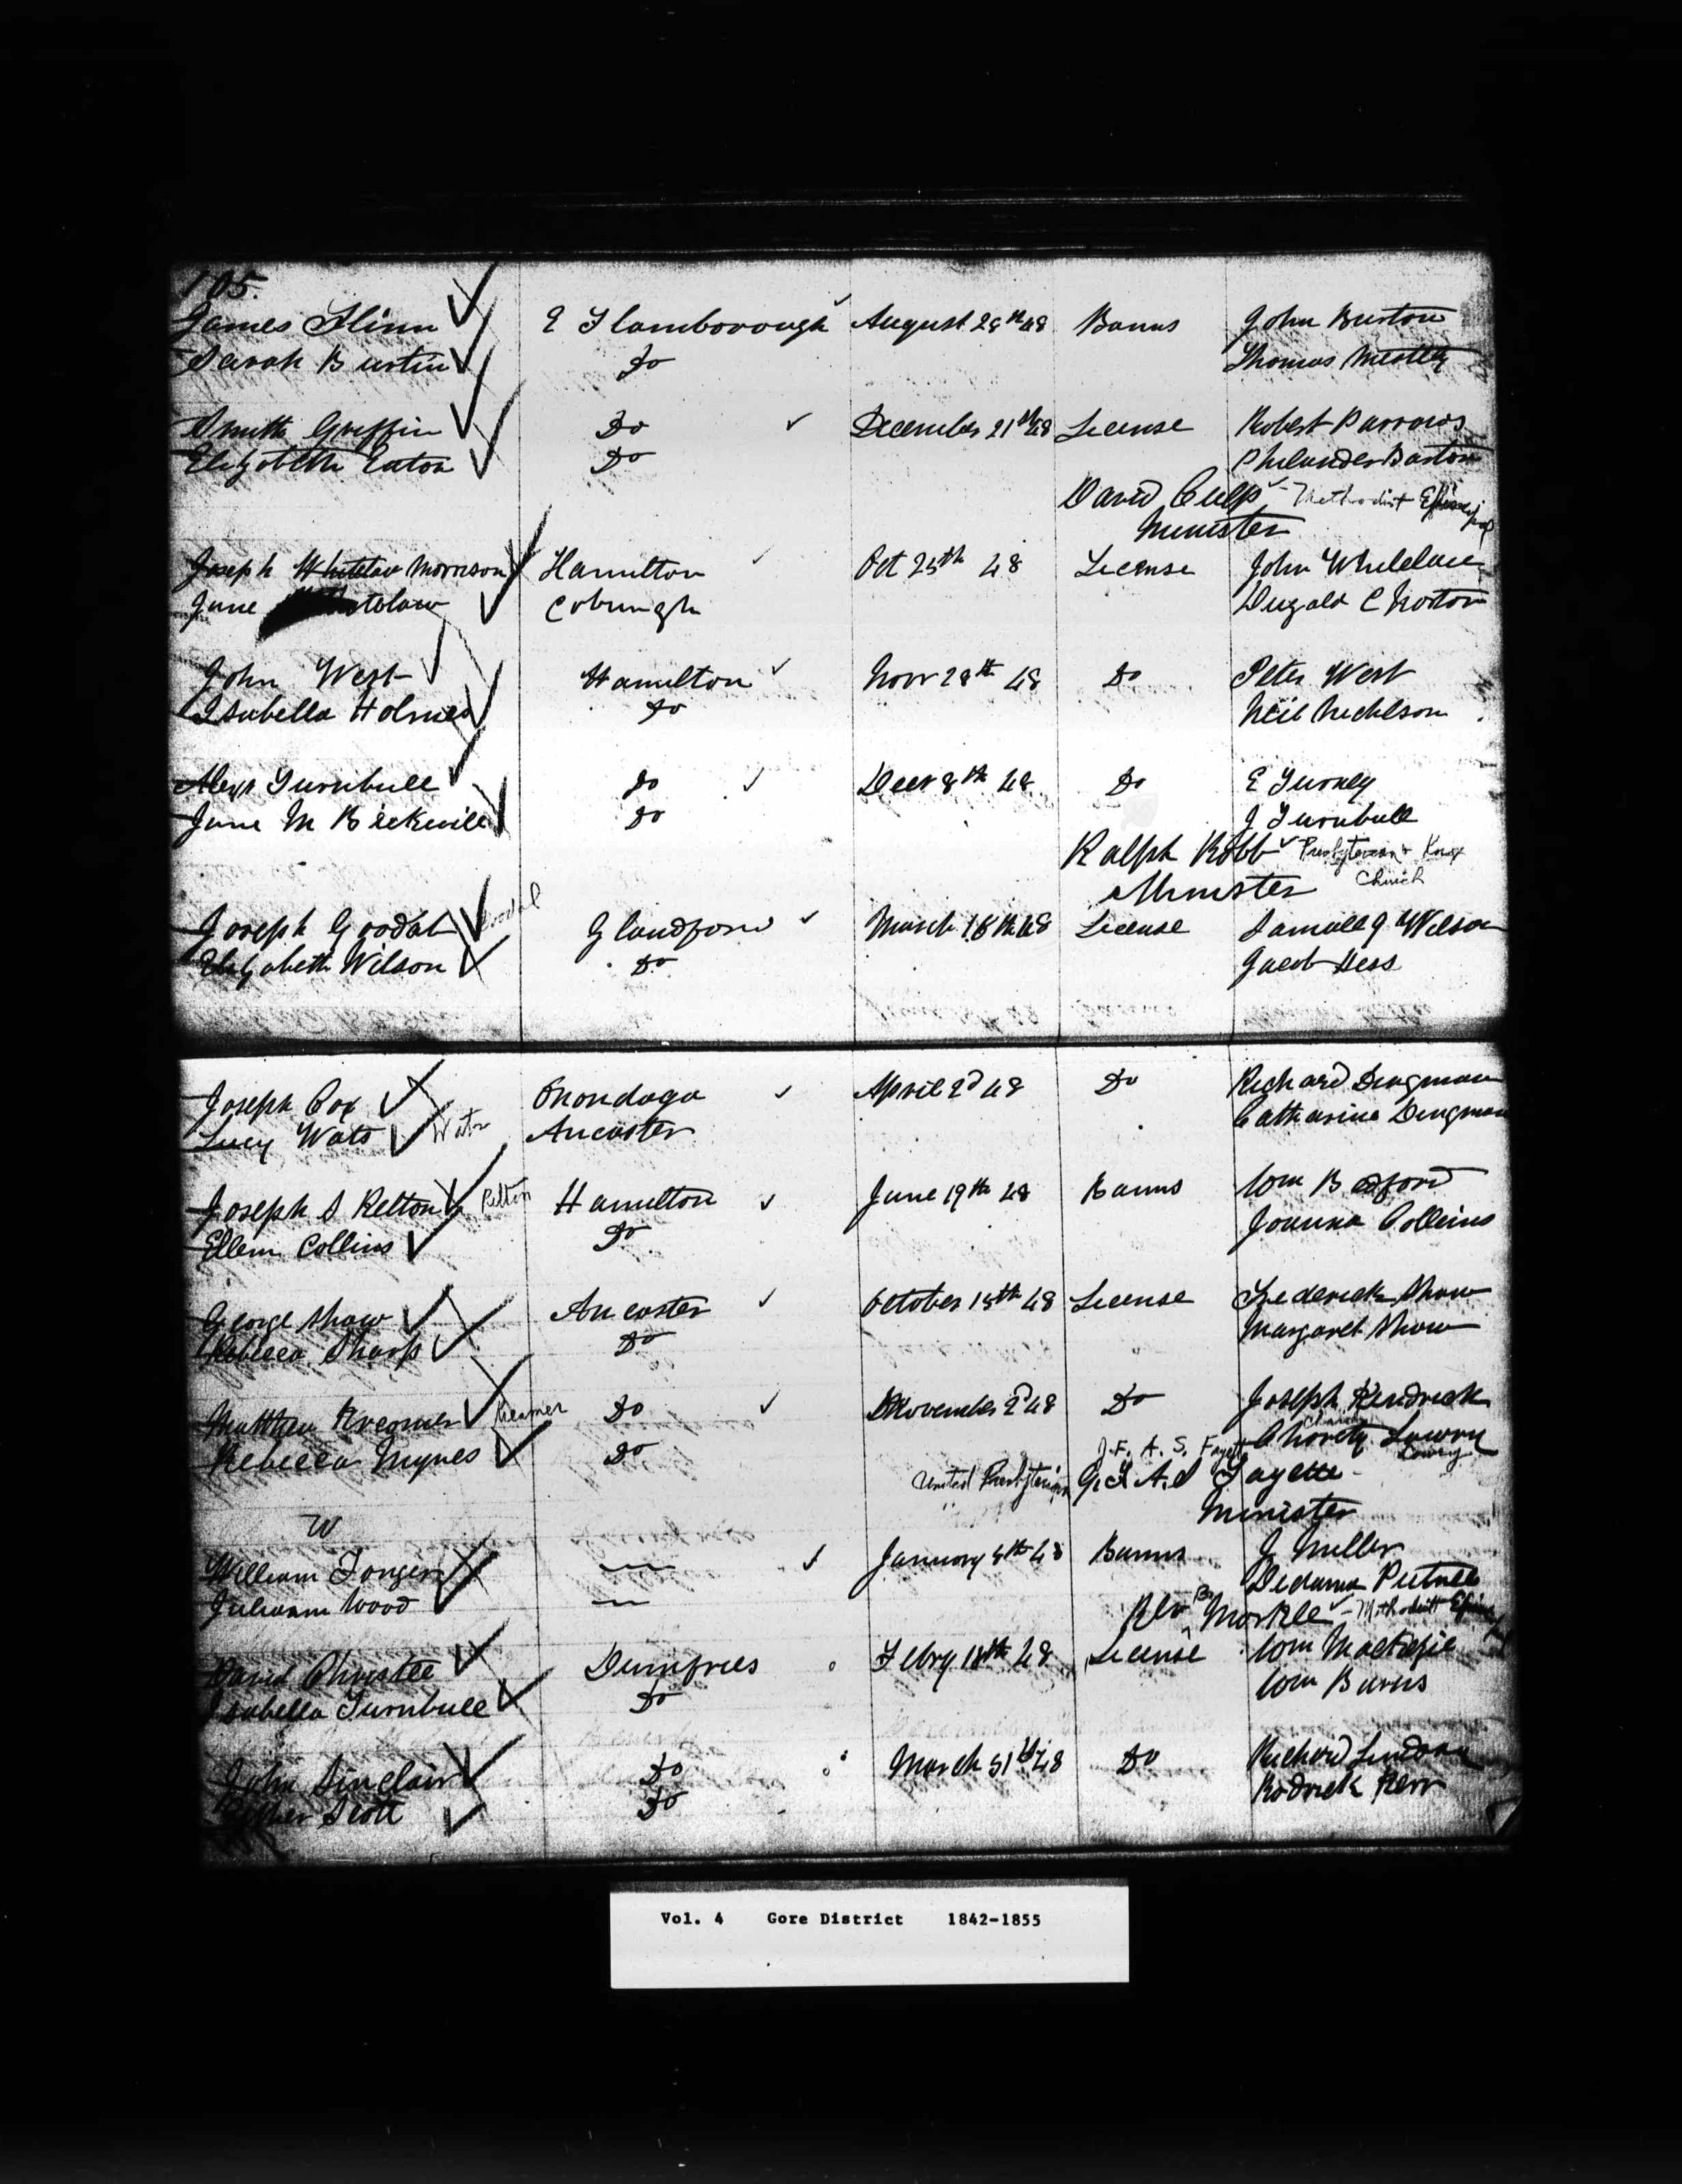 105.
James Flinn E Flamborough August 28th 48 Banns John Burton
Sarah Burtin Do Thomas
Smith Griffin Do December 21st 48 License Robert Parrows
Elizabeth Eaton Do Philander Barton
David Culp - Methodist Episcopal
Minister
Joseph Whitelaw Morrison Hamilton Oct 25th 48 License John Whitelaw
Jane Cobourgh Dugald C
John West Hamilton Novr 28th 48 Do Peter West
Isabella Holmes Do Neil Nichlson
Alexr Turnbull Do Decr 8th 48 Do E Furney
Jane M Do J Turnbull
Ralph Robb Presbyterian Knox
Minister Church
Joseph Goodal Goodal Glandford March 18th 48 License Samuell J Wilson
Elizabeth Wilson Do Jacob Hess
Joseph Cox Onondaga April 2d 48 Do Richard Dingman
Lucy Wats Wats Ancaster Catharine Dingman
Joseph S Relton Relton Hamilton June 19th 48 Banns Wm Bedford
Ellen Collins Do Joanna Colleins
George Shaw Ancaster October 18th 48 License Frederick Shaw
Rebecca Sharp Do Margaret Shaw
Matthew Kreamer Kreamer Do November 2d 48 Do Joseph Kendrick
Rebecca Mynes Do J. F. A. S. Fayette Charity Lowry Lowry
United Presbyterian G. F A. S Fayette
Minister
W
William Tonger — January 4th 48 Banns J Miller
Juliann Wood —
Rev B Markle - Methodist
David Christee Dumfries Febry 18th 48 License Wm
Isabella Turnbull Do Wm Burns
John Sinclair Do March 31st 48 Do Richard
Scott Do Rodrick Kerr
Vol. 4 Gore District 1842-1855